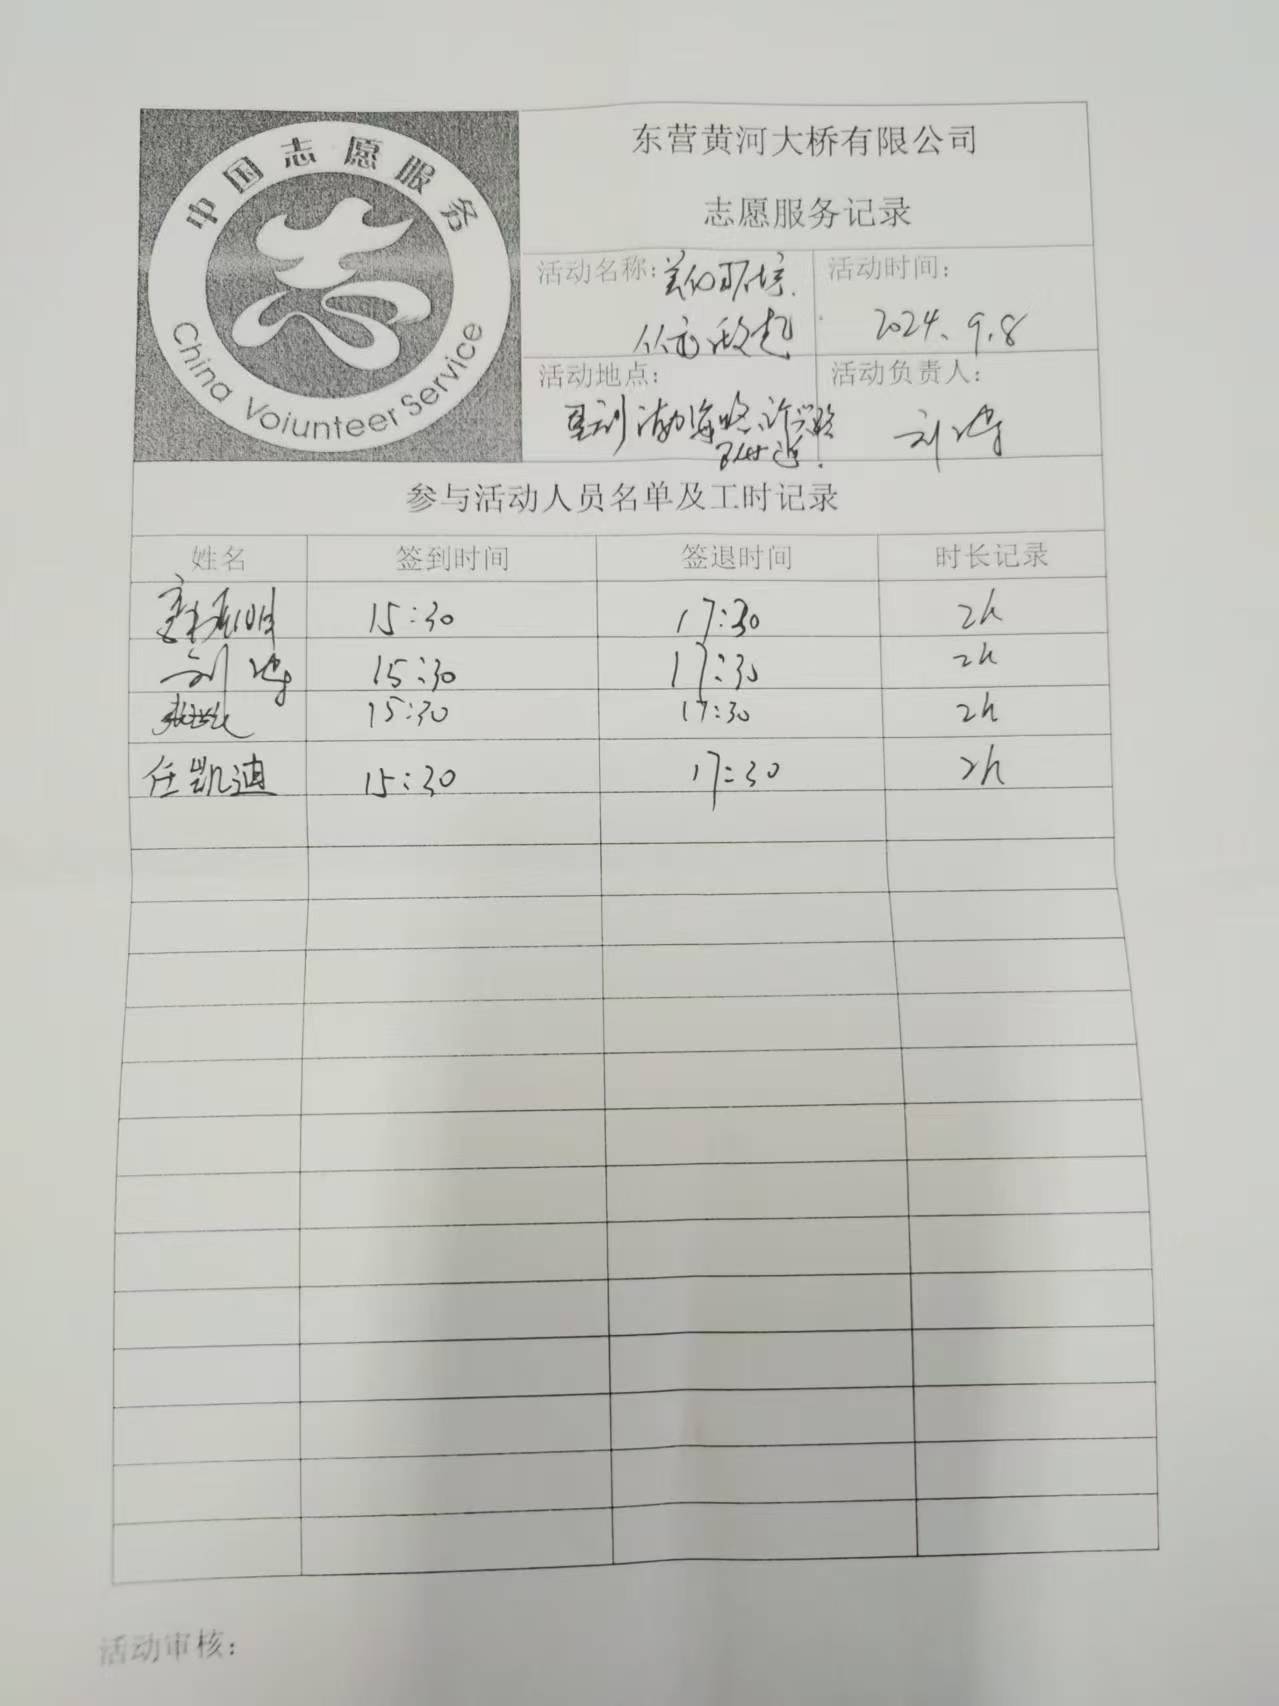 中国志愿服务
China Voiunteer Service
东营黄河大桥有限公司
志愿服务记录
活动名称: 美化环境.
从我做起
活动时间:
2024.9.8
活动地点:
垦利渤海路、兴路
附近.
活动负责人:
刘
参与活动人员名单及工时记录
姓名 签到时间 签退时间 时长记录
15:30 17:30 2h
刘 15:30 17:30 2h
15:30 17:30 2h
任凯迪 15:30 17:30 2h
活动审核: